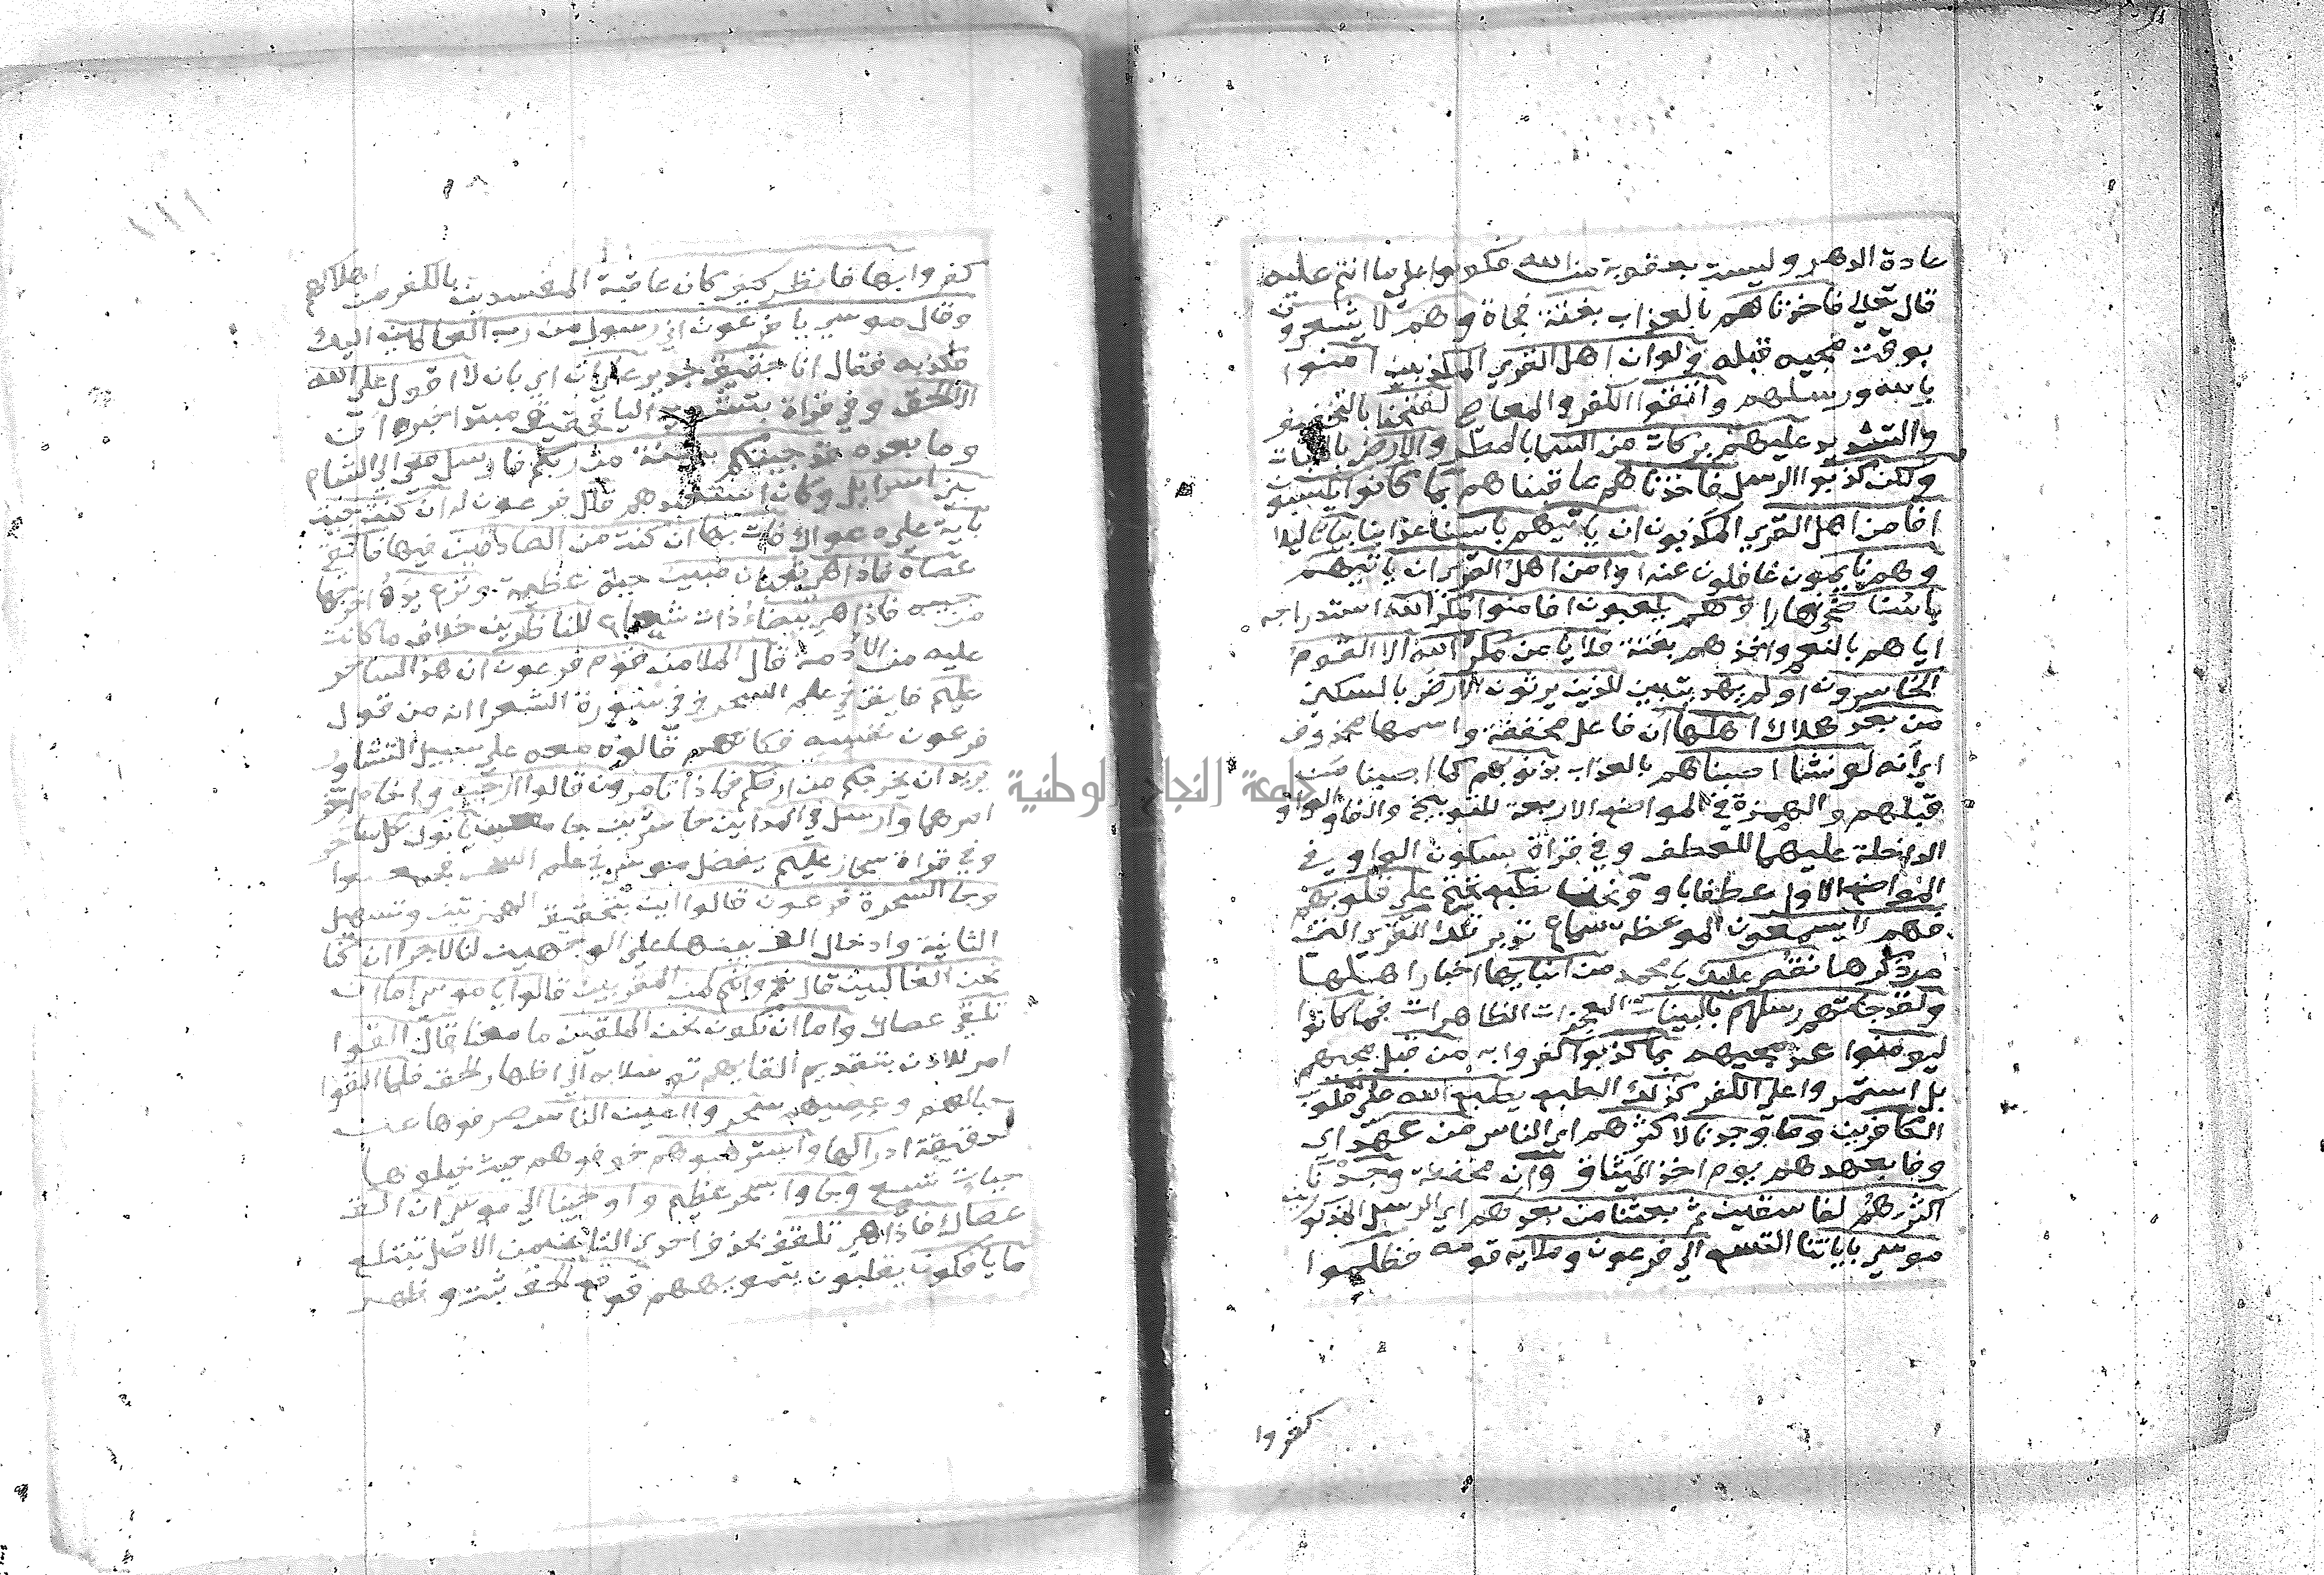 عادة الدهر وليست بعقوبة من الله فكونوا علي ما انتم عليه
قال تعالي فاخذناهم بالعذاب بغتة فجاة وهم لا يشعرون
بوقت مجيه قبله ولو ان اهل القري المكذبين امنوا
بالله ورسلهم واتقوا الكفر والمعاصي لفتحنا بالتخفيف
والتشديد عليهم بركات من السما بالمطر والارض بالنبات
ولكن كذبوا الرسل فاخذناهم عاقبناهم بما كانوا يكسبون
افامن اهل القري المكذبون ان ياتيهم باسنا عذابنا بياتا ليلا
وهم نايمون غافلون عنه اوامن اهل القري ان ياتيهم
باسنا ضحي نهارا وهم يلعبون افامنوا مكر الله استدراجه
اياهم بالنعم واخذهم بغتة فلا يامن مكر الله الا القوم
الخاسرون اولم يهد يتبين للذين يرثون الارض بالسكني
من بعد هلاك اهلها ان فاعل مخففة واسمها محذوف
اي انه لو نشا اصبناهم بالعذاب بذنوبهم كما اصبنا من
قبلهم والهمزة في المواضع الاربعة للتوبيخ والفا والواو
الداخلة عليهما للعطف وفي قراة بسكون الواو في
المواضع الاول عطفا باو ونحن نطبع نختم علي قلوبهم
فهم لا يسمعون الموعظة سماع تدبر تلك القري التي
مر ذكرها نقص عليك يا محمد من انبايها اخبار اهلها
ولقد جاتهم رسلهم بالبينات المعجزات الظاهرات فما كانوا
ليومنوا عند مجيهم بما كذبوا كفروا به من قبل مجيهم
بل استمروا علي الكفر كذلك الطبع يطبع الله علي قلوب
الكافرين وما وجدنا لاكثرهم اي الناس من عهد اي
وفا بعهدهم يوم اخذ الميثاق وان مخففة وجدنا
اكثرهم لفاسقين ثم بعثنا من بعدهم اي الرسل المذكورين
موسي باياتنا التسع الي فرعون وملايه قومه فظلموا
كفروا
١١١
كفروا بها فانظر كيف كان عاقبة المفسدين بالكفر من اهلاكهم
وقال موسي يا فرعون اني رسول من رب العالمين اليك
فكذبه فقال انا حقيق جدير علي ان اي بان لا اقول علي الله
الا الحق وفي قراة بتشديد اليا فحقيق مبتدا خبره ان
وما بعده قد جيتكم ببينة من ربكم فارسل معي الي الشام
بني اسرايل وكان استعبدهم قال فرعون له ان كنت جيت
باية علي دعواك فات بها ان كنت من الصادقين فيها فالقي
عصاه فاذا هي ثعبان مبين حية عظيمة ونزع يده اخرجها
من جيبه فاذا هي بيضاء ذات شعاع للناظرين خلاف ما كانت
عليه من الادمة قال الملا من قوم فرعون ان هذا لساحر
عليم فايق في علم السحر وفي سورة الشعرا انه من قول
فرعون نفسه فكانهم قالوه معه علي سبيل التشاور
يريد ان يخرجكم من ارضكم فماذا تامرون قالوا ارجيه واخاه اخر
امرهما وارسل في المداين حاشرين جامعين ياتوك بكل ساحر
وفي قراة سحار عليم يفضل موسي في علم السحر فجمعوا
وجا السحرة فرعون قالوا اين بتحقيق الهمزتين وتسهيل
الثانية وادخال الف بينهما علي الوجهين لنا لاجرا ان كنا
نحن الغالبين قال نعم وانكم لمن المقربين قالوا يا موسي اما ان
تلقي عصاك واما ان نكون نحن الملقين ما معنا قال القوا
امر للاذن بتقديم القايهم توسلا به الي اظهار الحق فلما القوا
حبالهم وعصيهم سحروا اعين الناس صرفوها عن
حقيقة ادراكها واسترهبوهم خوفوهم حيث خيلوها
حيات تسعي وجاوا بسحر عظيم واوحينا الي موسي ان الق
عصاك فاذا هي تلقف بحذف احدي التاين من الاصل تبتلع
ما يافكون يقلبون بتمويههم فوقع الحق ثبت وظهر
جامعة النجاح الوطنية